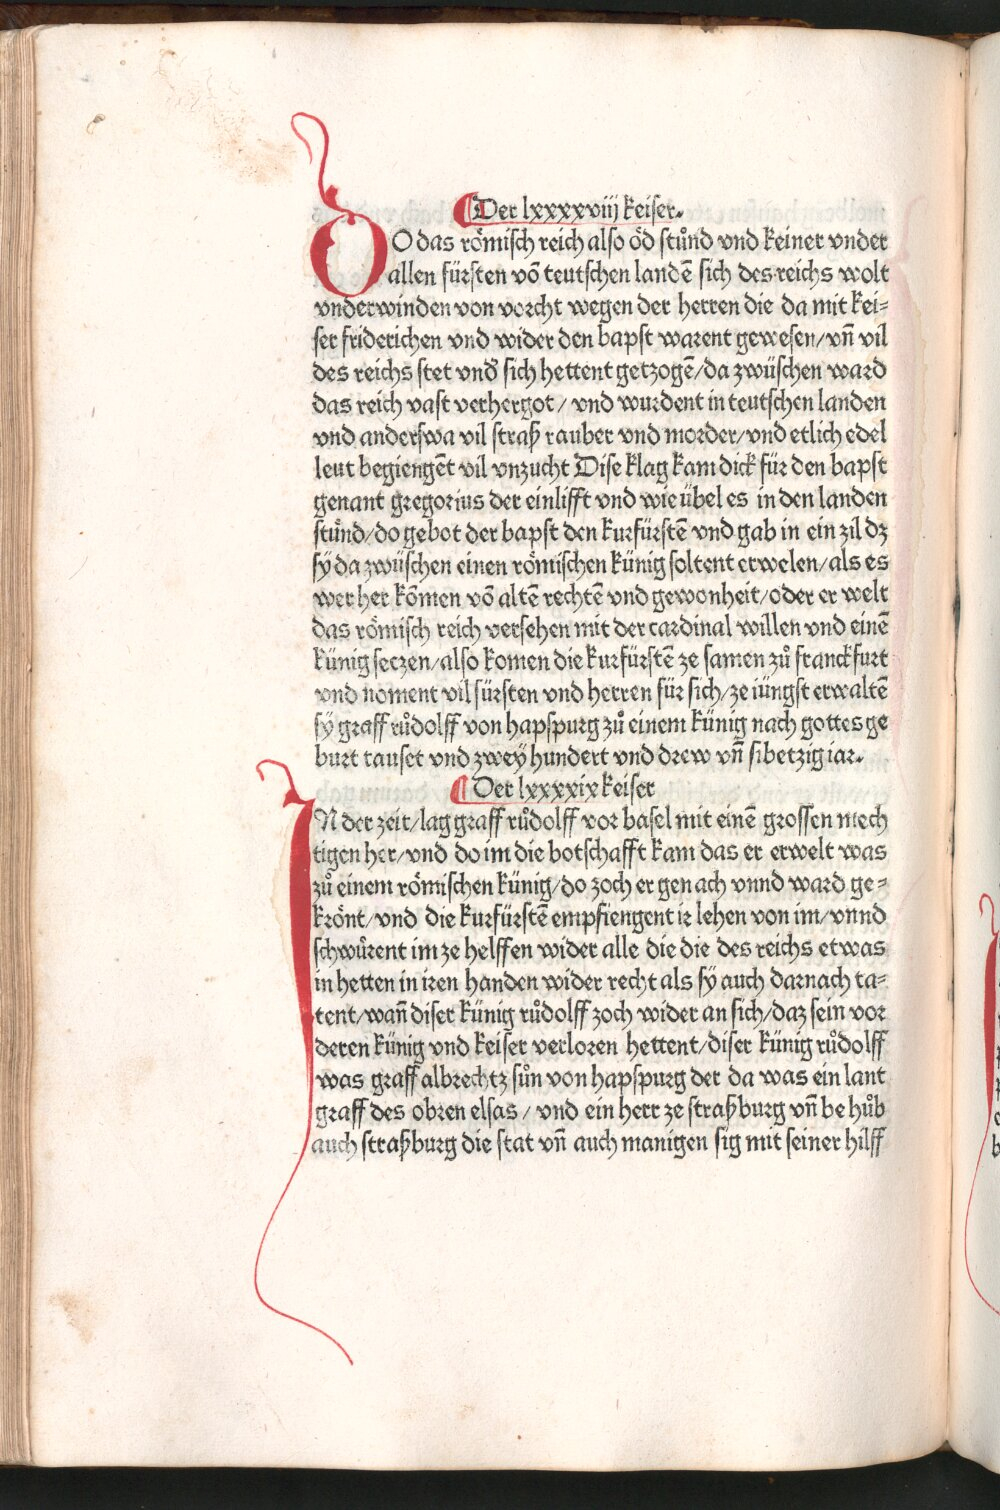 Der lxxxxviij keiser.
DO das römisch reich also öd stůnd vnd keiner vnder
allen fürsten võ teutschen landẽ sich des reichs wolt
vnderwinden von vorcht wegen der herren die da mit kei⸗
ser friderichen vnd wider den bapst warent gewesen/vñ vil
des reichs stet vnd̕ sich hettent getzogẽ/da zwüschen ward
das reich vast verhergot/ vnd wurdent in teutschen landen
vnd anderswa vil straß rauber vnd morder/vnd etlich edel
leut begiengẽt vil vnzucht Dise klag kam dick für den bapst
genant gregorius der einlifft vnd wie übel es in den landen
stůnd/do gebot der bapst den kurfürstẽ vnd gab in ein zil dz
sy̋ da zwüschen einen römischen künig soltent erwelen/als es
wer her kõmen võ altẽ rechtẽ vnd gewonheit/oder er welt
das römisch reich versehen mit der cardinal willen vnd einẽ
künig seczen/also komen die kurfürstẽ ze samen zů franckfurt
vnd noment vil fürsten vnd herren für sich/ze iüngst erwaltẽ
sy̋ graff růdolff von hapspurg zů einem künig nach gottes ge
burt tauset vnd zwey̋ hundert vnd drew vñ sibetzig iar.
Der lxxxxix keiser
IN der zeit/lag graff růdolff vor basel mit einẽ grossen mech
tigen her/vnd do im die botschafft kam das er erwelt was
zů einem römischen künig/do zoch er gen ach vnnd ward ge⸗
krönt/vnd die kurfürstẽ empfiengent ir lehen von im/vnnd
schwůrent im ze helffen wider alle die die des reichs etwas
in hetten in iren handen wider recht als sy̋ auch darnach ta⸗
tent/wañ diser künig růdolff zoch wider an sich/daz sein vor
deren künig vnd keiser verloren hettent/diser künig růdolff
was graff albrechtz sůn von hapspurg der da was ein lant
graff des obren elsas/ vnd ein herr ze straßburg vñ be hůb
auch straßburg die stat vñ auch manigen sig mit seiner hilff